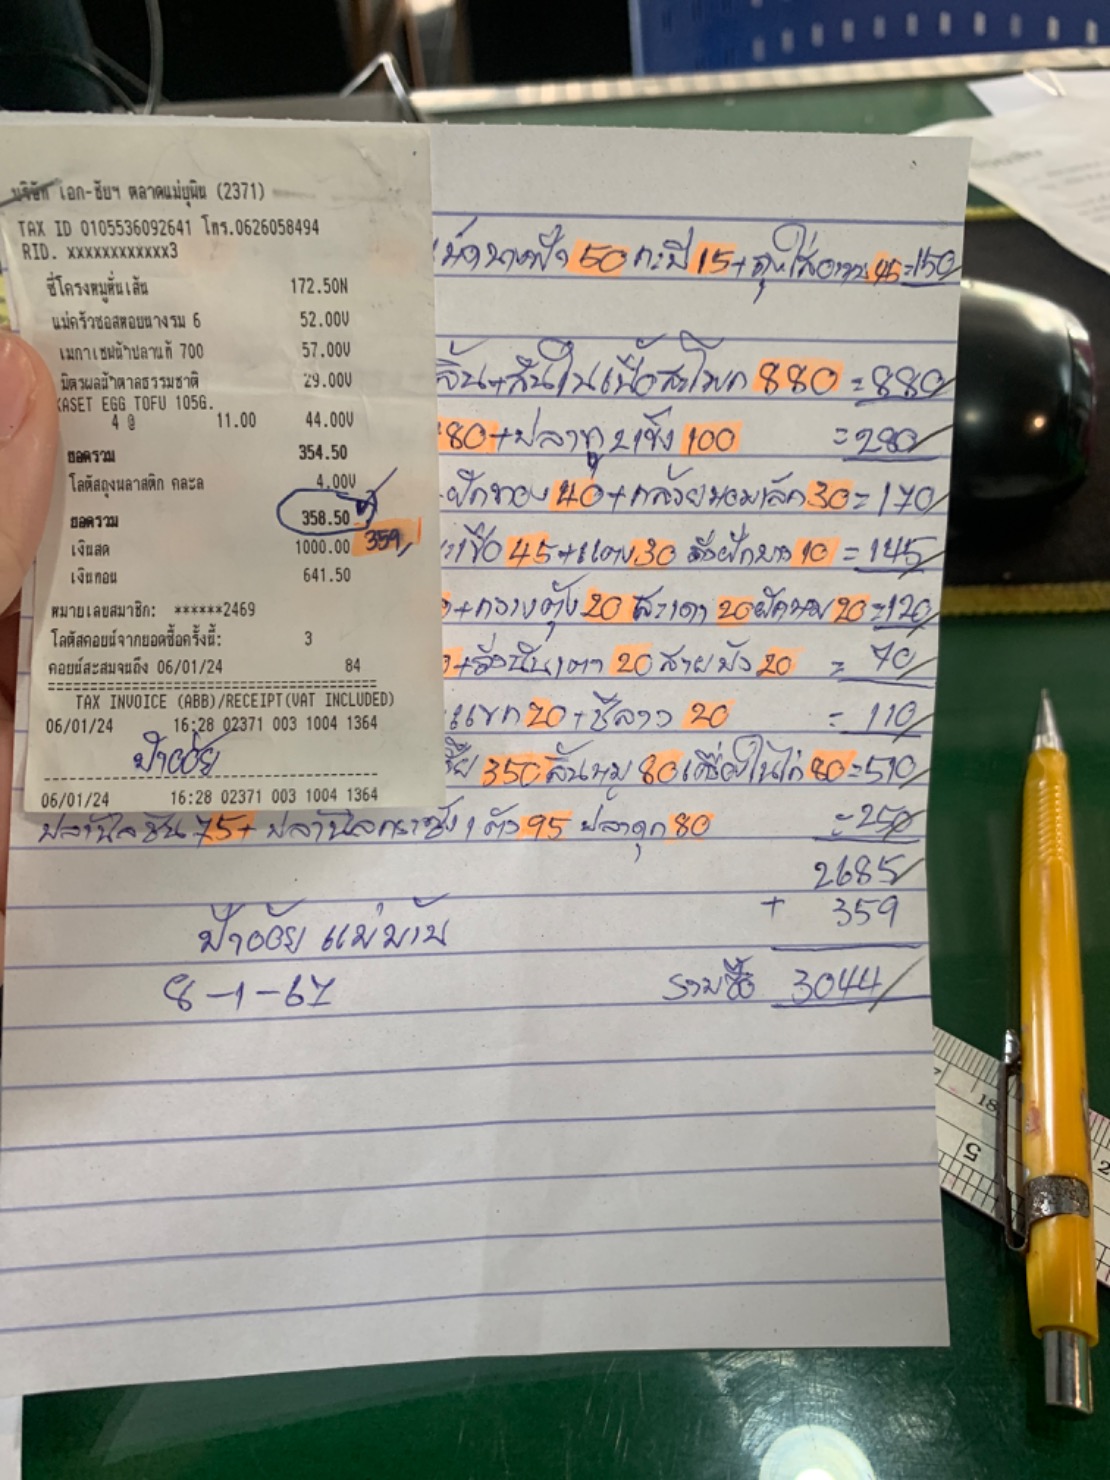 บริษัท เอก-ชัยฯ ตลาดแม่ยุพิน (2371)
TAX ID 0105536092641 โทร.0626058494
RID. xxxxxxxxxxxx3
ซี่โครงหมูหั่นเส้น 172.50N
แม่ครัวซอสหอยนางรม 6 52.00V
เมกาเชฟน้ำปลาแท้ 700 57.00V
มิตรผลน้ำตาลธรรมชาติ 29.00V
KASET EGG TOFU 105G.
4 @ 11.00 44.00V
ยอดรวม 354.50
โลตัสถุงพลาสติก คละล 4.00V
ยอดรวม 358.50
เงินสด 1000.00 359
เงินทอน 641.50
หมายเลขสมาชิก: ******2469
โลตัสคอยน์จากยอดซื้อครั้งนี้: 3
คอยน์สะสมจนถึง 06/01/24 84
TAX INVOICE (ABB)/RECEIPT(VAT INCLUDED)
06/01/24 16:28 02371 003 1004 1364
ป้าอ้อย
06/01/24 16:28 02371 003 1004 1364
50 กะปิ 15+ ถุงใส่ 45=150
สันในเนื้อสะโพก 880 =880
80+ปลาทู 2เข่ง 100 =280
ฟักทอง 40+กล้วยหอมเล็ก 30=170
45+แตง 30 ถั่วฝักยาว 10 =145
+กวางตุ้ง 20 สะเดา 20 ผักหวาน 20=120
20 20 = 70
แขก 20+ชีลาว 20 = 110
350 ลิ้นหมู 80 เครื่องในไก่ 80=510
ปลานิลชิ้น 75+ ปลานิล 1 ตัว 95 ปลาดุก 80 =250
2685
+ 359
ป้าอ้อย แม่บ้าน
8-1-67 รวมซื้อ 3044
18
5